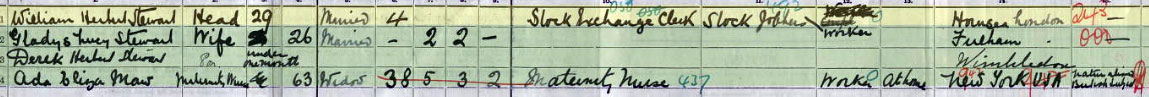 1 William Herbert Stewart Head 29 Married 4 Stock Exchange Clerk Stock Jobbers Worker Hornsea London
2 Gladys Lucy Stewart Wife 26 Married - 2 2 - Fulham
3 Derek Herbert Stewart Son under one month Wimbledon
4 Ada Eliza Maw Maternity Nurse 63 Widow 38 5 3 2 Maternity Nurse 437 Worker At home New York USA